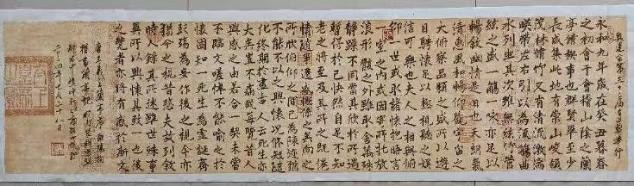 永和九年歲在癸丑暮春
之初會于會稽山陰之蘭
亭脩禊事也群賢畢至少
長咸集此地有崇山峻領
茂林脩竹又有清流激湍
映帶左右引以為流觴曲
水列坐其次雖無絲竹管
弦之盛一觴一詠亦足以
暢敘幽情是日也天朗氣
清惠風和暢仰觀宇宙之
大俯察品類之盛所以遊
目騁懷足以極視聽之娛
信可樂也夫人之相與俯
仰一世或取諸懷抱悟言
一室之內或因寄所託放
浪形骸之外雖取舍萬殊
靜躁不同當其欣於所遇
暫得於己快然自足不知
老之將至及其所之既倦
情隨事遷感慨係之矣向之
所欣俛仰之間已為陳迹猶
不能不以之興懷況脩短隨
化終期於盡古人云死生亦
大矣豈不痛哉每攬昔人
興感之由若合一契未嘗
不臨文嗟悼不能喻之於
懷固知一死生為虛誕齊
彭殤為妄作後之視今亦
猶今之視昔悲夫故列敘
時人錄其所述雖世殊事
異所以興懷其致一也後
之覽者亦將有感於斯文